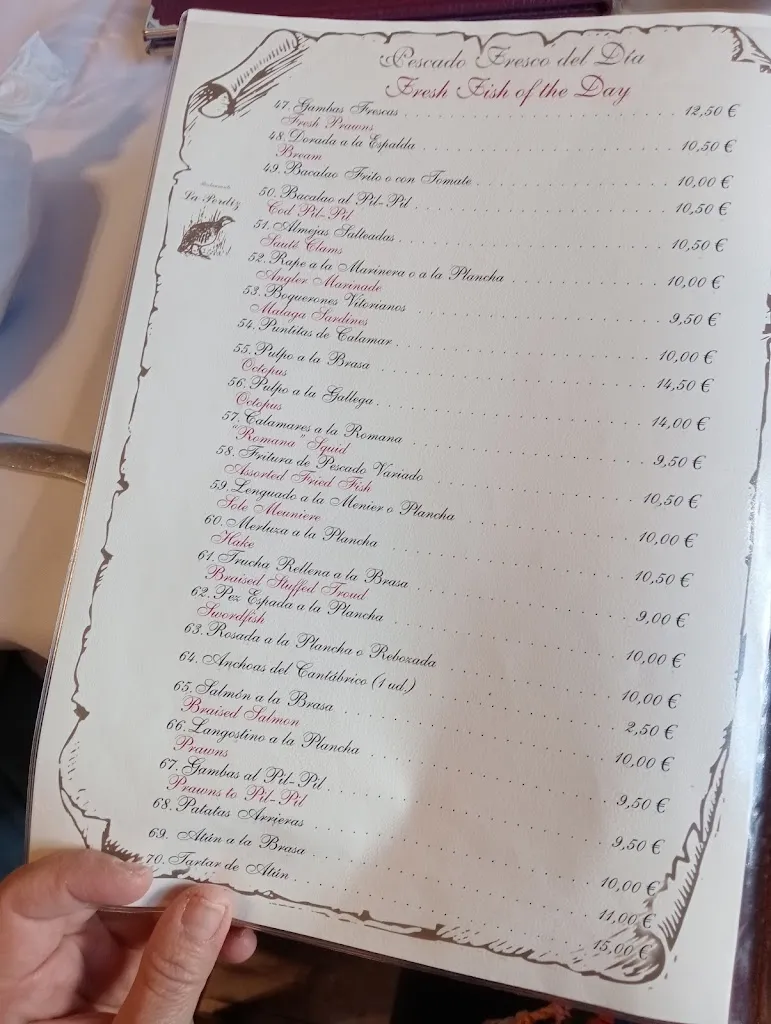 Pescado Fresco del Día
Fresh Fish of the Day
La Perdiz
47. Gambas Frescas 12,50 €
Fresh Prawns
48. Dorada a la Espalda 10,50 €
Bream
49. Bacalao Frito o con Tomate 10,00 €
50. Bacalao al Pil-Pil 10,50 €
Cod Pil-Pil
51. Almejas Salteadas 10,50 €
Sauté Clams
52. Rape a la Marinera o a la Plancha 10,00 €
Angler Marinade
53. Boquerones Vitorianos 9,50 €
Malaga Sardines
54. Puntitas de Calamar 10,00 €
55. Pulpo a la Brasa 14,50 €
Octopus
56. Pulpo a la Gallega 14,00 €
Octopus
57. Calamares a la Romana 9,50 €
"Romana" Squid
58. Fritura de Pescado Variado 10,50 €
Assorted Fried Fish
59. Lenguado a la Menier o Plancha 10,00 €
Sole Meuniere
60. Merluza a la Plancha 10,50 €
Hake
61. Trucha Rellena a la Brasa 9,00 €
Braised Stuffed Troud
62. Pez Espada a la Plancha 10,00 €
Swordfish
63. Rosada a la Plancha o Rebozada 10,00 €
64. Anchoas del Cantábrico (1 ud.) 2,50 €
65. Salmón a la Brasa 10,00 €
Braised Salmon
66. Langostino a la Plancha 9,50 €
Prawns
67. Gambas al Pil-Pil 9,50 €
Prawns to Pil-Pil
68. Patatas Arrieras 10,00 €
69. Atún a la Brasa 11,00 €
70. Tartar de Atún 15,00 €